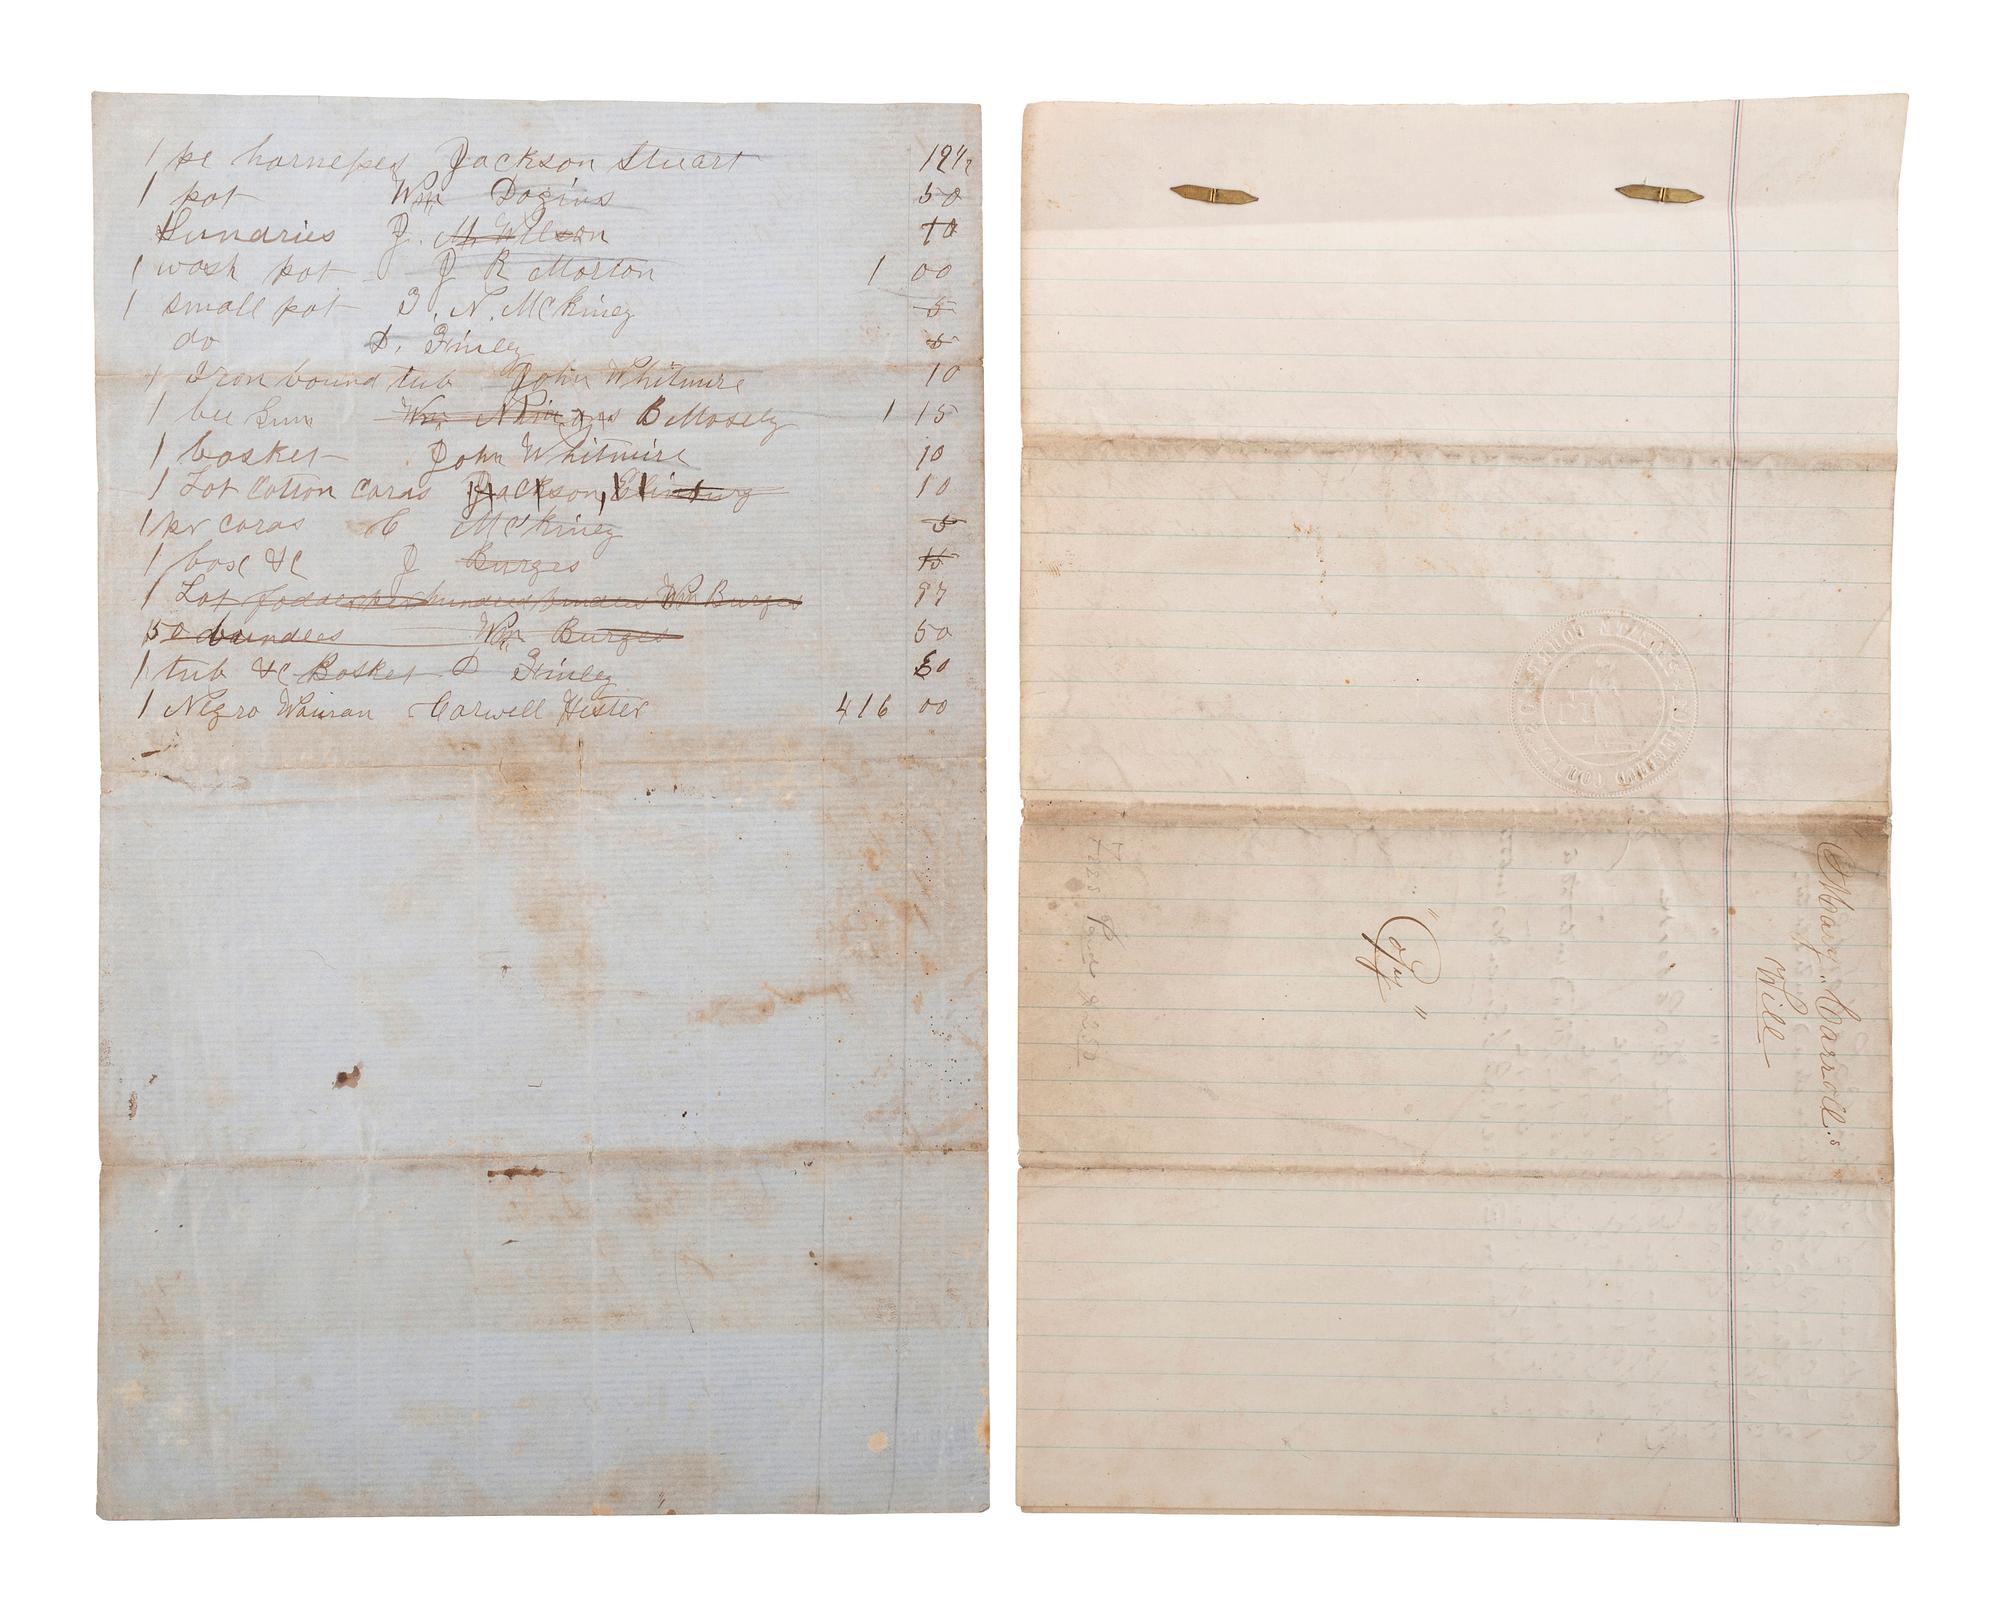 1 pc harnesses Jackson Stuart 12 1/2
1 pot Wm Dogins 50
Sundries J. M. Wilson 10
1 wash pot J R Morton 1 00
1 small pot N. McKiney 5
do D. Finley 5
1 Iron bound tub John Whitmire 10
1 bee Gum Wm B Mosely 1 15
1 basket John Whitmire 10
1 Lot Cotton Cards Jackson 10
1 pr cards C McKiney 5
1 box &c J Burges
1 Lot fodder per hundred bundles Wm Burges 97
50 bundles Wm Burges 50
1 tub &c Basket D Finley
1 Negro Woman Carwell Hister 416 00
Mary Carroll's
Will
"Copy"
Paid $2.50